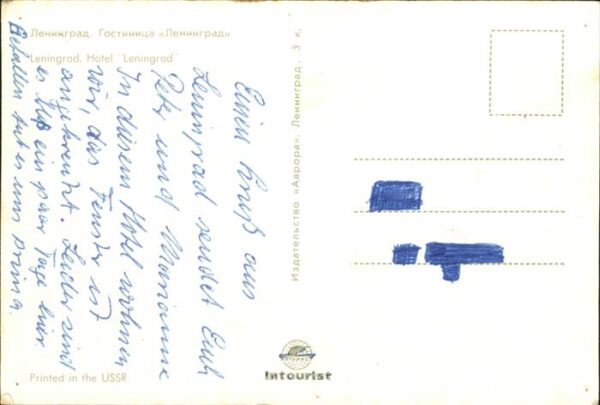 Ленинград. Гостиница «Ленинград»
Leningrad. Hotel "Leningrad"
Einen Gruß aus
Leningrad sendet Euch
Petr und Marianne
In diesem Hotel wohnen
wir, das Fenster ist
angekreuzt. Leider sind
es nur ein paar Tage hier
Gefallen tut es uns prima.
Издательство «Аврора». Ленинград. 3 к.
Intourist
Printed in the USSR